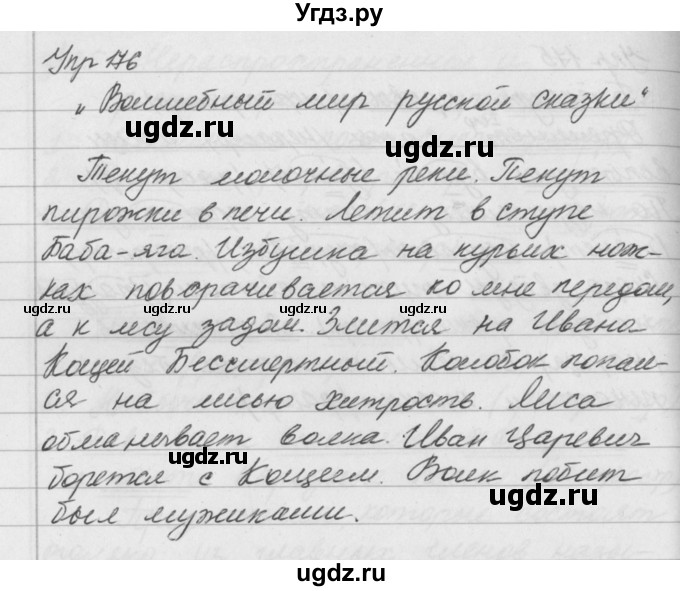 Угдз.ру
Упр 176
„Волшебный мир русской сказки“
ugdz.ru
ugdz.ru
Текут молочные реки. Пекут
пирожки в печи. Летит в ступе
Баба-яга. Избушка на курьих нож-
ugdz.ru
ках поворачивается ко мне передом,
а к лесу задом. Злится на Ивана
ugdz.ru
ugdz.ru
Кощей Бессмертный. Колобок попал-
ся на лисью хитрость. Лиса
обманывает волка. Иван Царевич
ugdz.ru
борется с Кощеем. Волк побит
ugdz.ru
был мужиками.
ugdz.ru